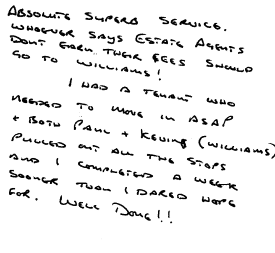 ABSOLUTE SUPERB SERVICE.
WHOEVER SAYS ESTATE AGENTS
DON'T EARN THEIR FEES SHOULD
GO TO WILLIAMS!
I HAD A TENANT WHO
NEEDED TO MOVE IN ASAP
+ BOTH PAUL + KEVIN (WILLIAMS)
PULLED OUT ALL THE STOPS
AND I COMPLETED A WEEK
SOONER THAN I DARED HOPE
FOR. WELL DONE!!